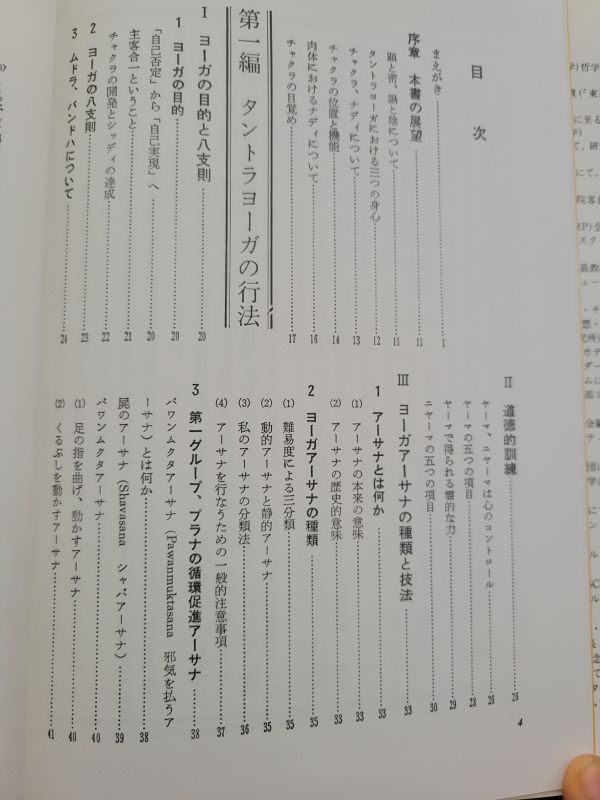 目 次
まえがき 1
序章 本書の展望 11
顕と密、陽と陰について 11
タントラヨーガにおける三つの身心 12
チャクラ、ナディについて 13
チャクラの位置と機能 14
肉体におけるナディについて 16
チャクラの目覚め 17
第一編 タントラヨーガの行法
Ⅰ ヨーガの目的と八支則 20
1 ヨーガの目的 20
「自己否定」から「自己実現」へ 20
主客合一ということ 21
チャクラの開発とシッディの達成 22
2 ヨーガの八支則 23
3 ムドラ、バンドハについて 24
Ⅱ 道徳的訓練 26
ヤーマ、ニヤーマは心のコントロール 26
ヤーマの五つの項目 28
ヤーマで得られる霊的な力 29
ニヤーマの五つの項目 30
Ⅲ ヨーガアーサナの種類と技法 33
1 アーサナとは何か 33
(1) アーサナの本来の意味 33
(2) アーサナの歴史的意味 33
2 ヨーガアーサナの種類 35
(1) 難易度による三分類 35
(2) 動的アーサナと静的アーサナ 35
(3) 私のアーサナの分類法 36
(4) アーサナを行なうための一般的注意事項 37
3 第一グループ、プラナの循環促進アーサナ 38
パワンムクタアーサナ（Pawanmuktasana 邪気を払うア
ーサナ）とは何か 38
屍のアーサナ（Shavasana シャバアーサナ） 39
パワンムクタアーサナ 40
(1) 足の指を曲げ、動かすアーサナ 40
(2) くるぶしを動かすアーサナ 41
4